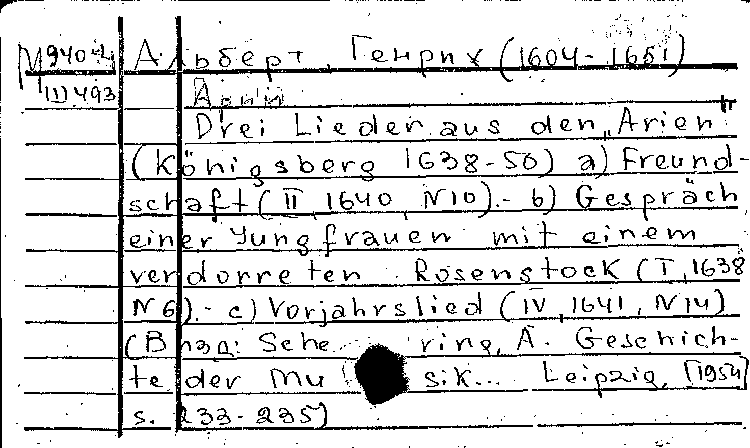 М940-4 Альберт, Генрих (1604-1651)
III 493 Арии
Drei Lieder aus den "Arien"
(Königsberg 1638-50) a) Freund-
schaft (II, 1640, N10).- b) Gespräch
einer Jungfrauen mit einem
verdorreten Rosenstock (I, 1638
N6).- c) Vorjahrslied (IV, 1641, N14)
(В изд: Schering, A. Geschich-
te der Musik... Leipzig, [1954]
s. 233-235)